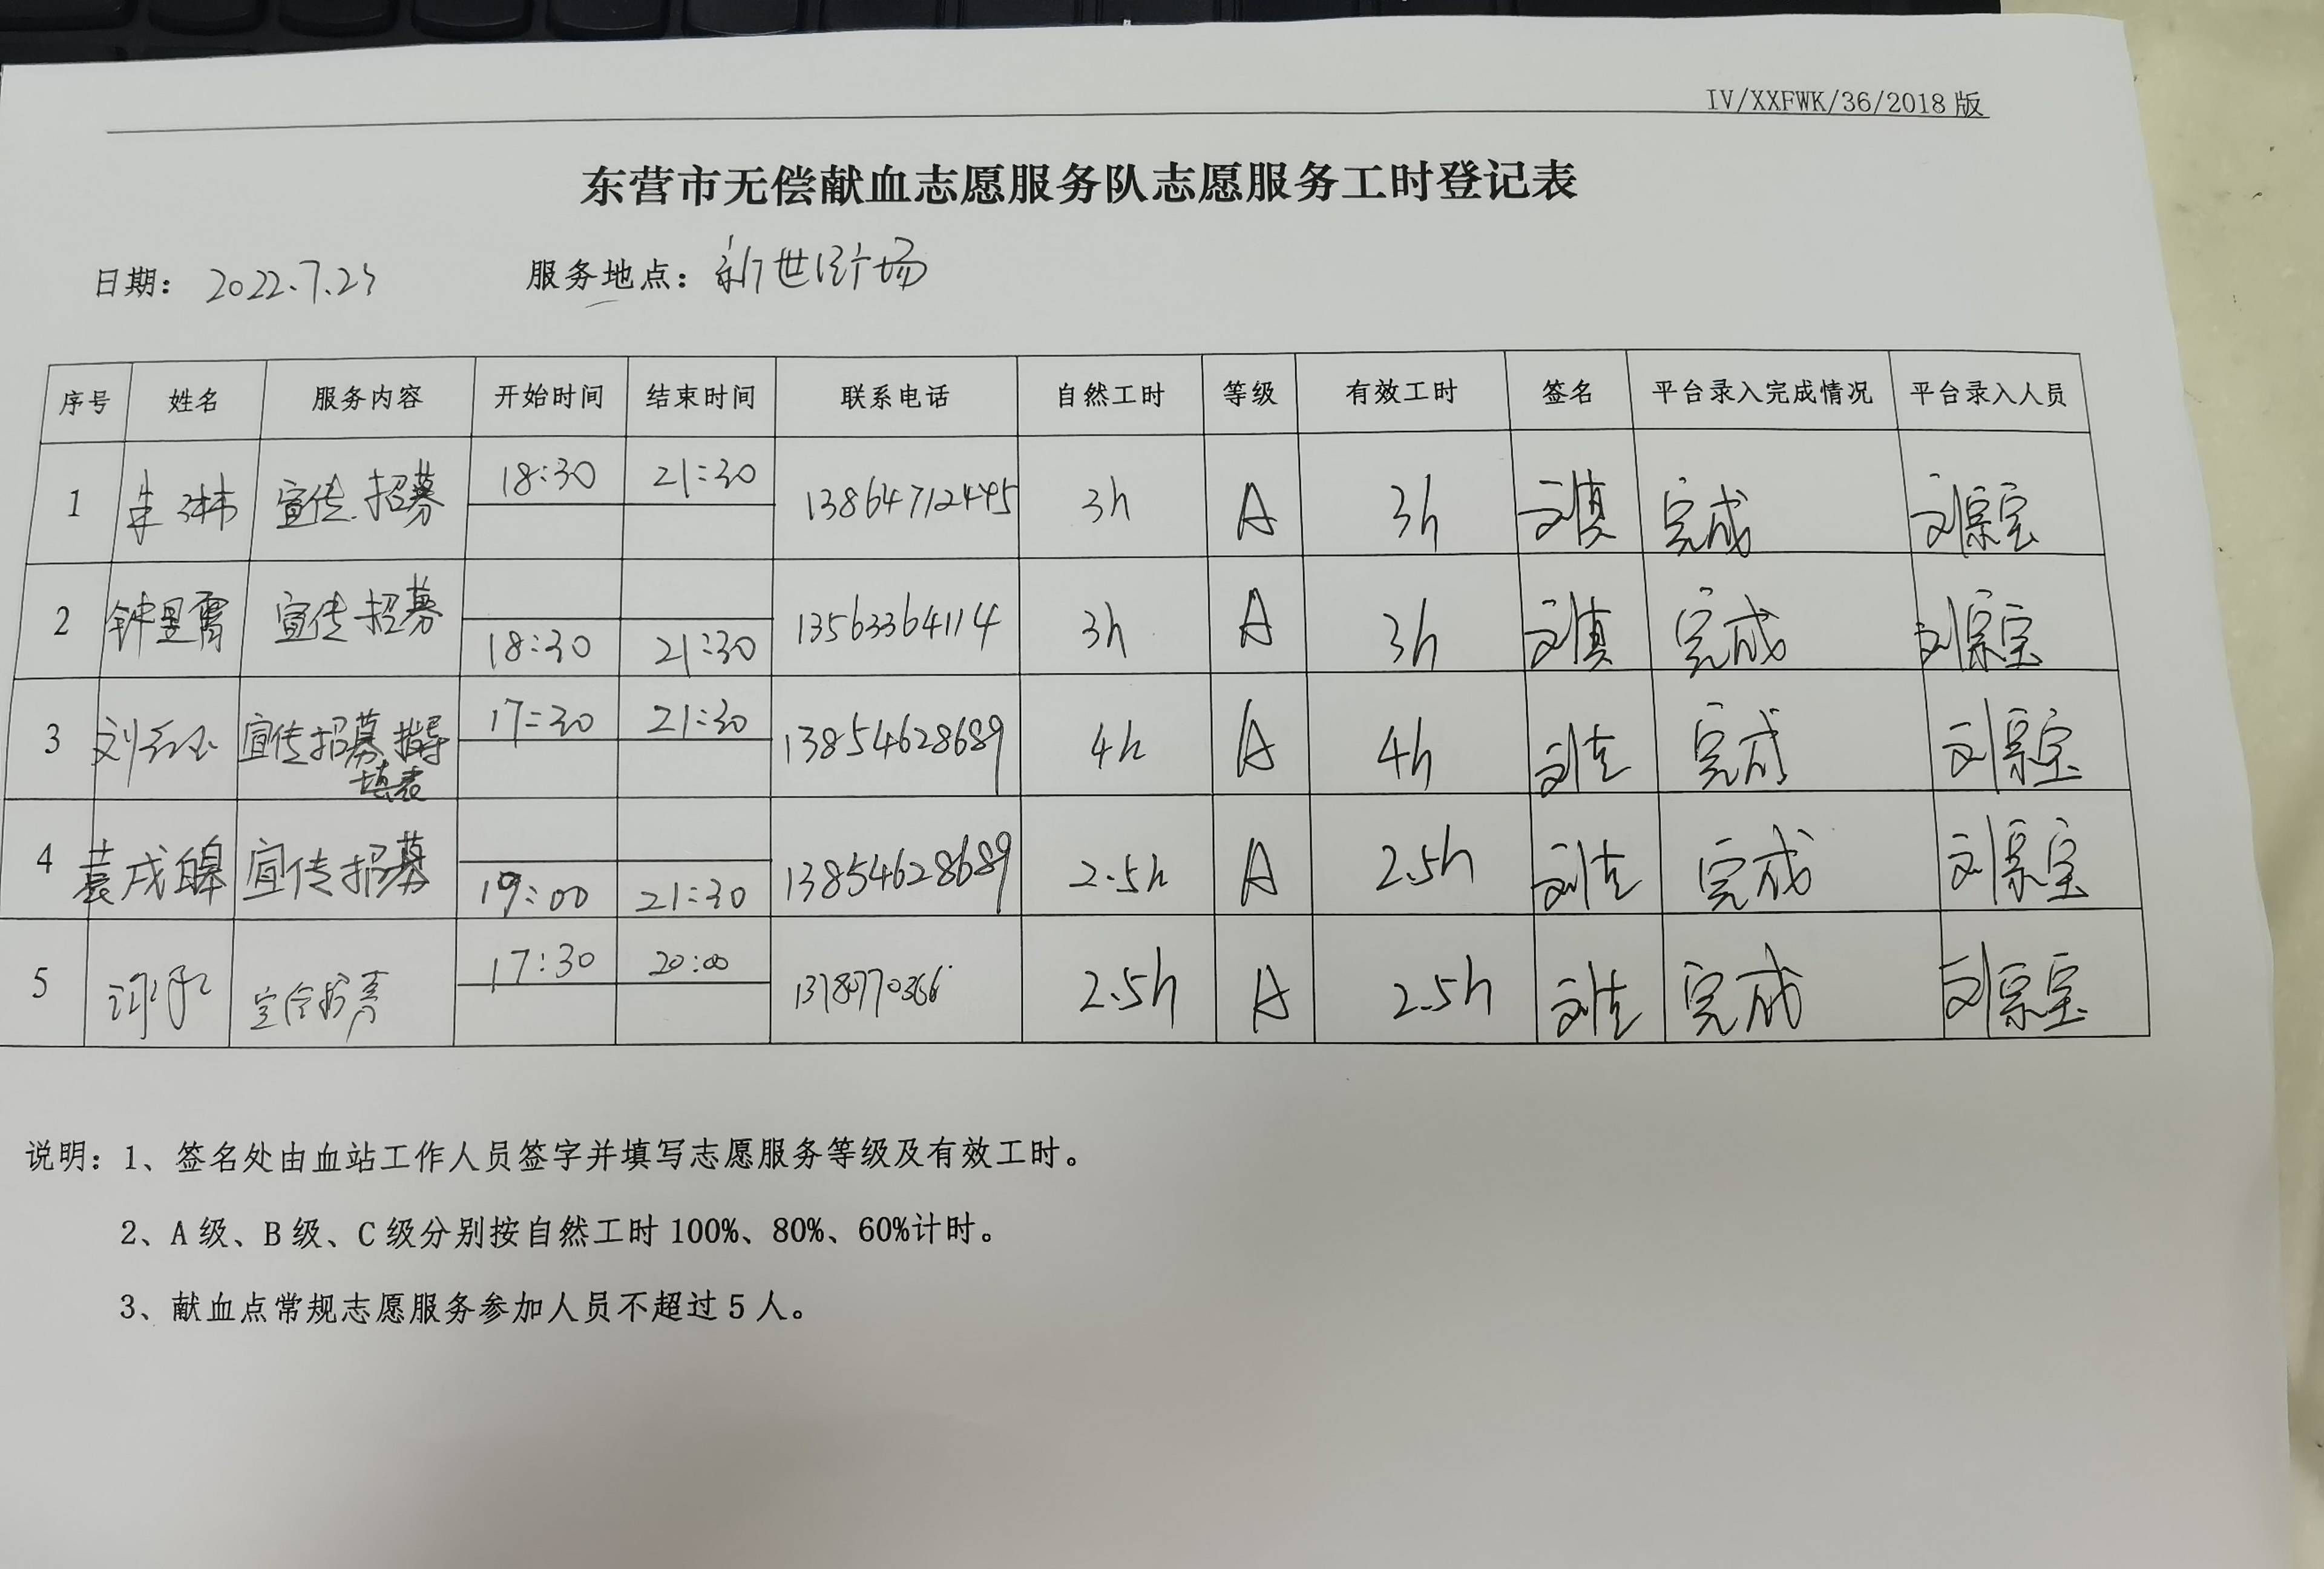 IV/XXFWK/36/2018 版
东营市无偿献血志愿服务队志愿服务工时登记表
日期： 2022.7.23 服务地点：新世纪广场
序号 姓名 服务内容 开始时间 结束时间 联系电话 自然工时 等级 有效工时 签名 平台录入完成情况 平台录入人员
1 宣传.招募 18:30 21:30 13864712445 3h A 3h 完成 刘宗宝
2 宣传招募 18:30 21:30 13563364114 3h A 3h 完成 刘宗宝
3 宣传招募指导填表 17:30 21:30 13854628689 4h A 4h 完成 刘宗宝
4 宣传招募 19:00 21:30 13854628689 2.5h A 2.5h 完成 刘宗宝
5 宣传招募 17:30 20:00 2.5h A 2.5h 完成 刘宗宝
说明：1、签名处由血站工作人员签字并填写志愿服务等级及有效工时。
2、A 级、B 级、C 级分别按自然工时 100%、80%、60%计时。
3、献血点常规志愿服务参加人员不超过 5 人。